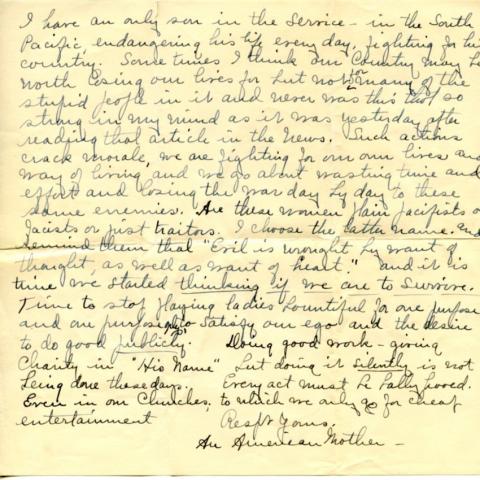 I have an only son in the service - in the South
Pacific, endangering his life every day, fighting for his
country. Some times I think our Country may be
worth losing our lives for but not for many of the
stupid people in it and never was this thot so
strong in my mind as it was yesterday after
reading that article in the News. Such actions
crack morale, we are fighting for our own lives and
way of living and we go about wasting time and
effort and losing the war day by day to these
same enemies. Are these women plain pacifists or
facists or just traitors. I choose the latter name. and
remind them that "Evil is wrought by want of
thought, as well as want of heart." and it is
time we started thinking if we are to survive.
Time to stop playing ladies bountiful for one purpose
and one purpose only to satisfy our ego and the desire
to do good publicly. Doing good work - giving
Charity in "His Name" but doing it silently is not
being done these days. Every act must be ballyhooed.
Even in our Churches, to which we only go for cheap
entertainment
Respt Yours.
An American Mother -